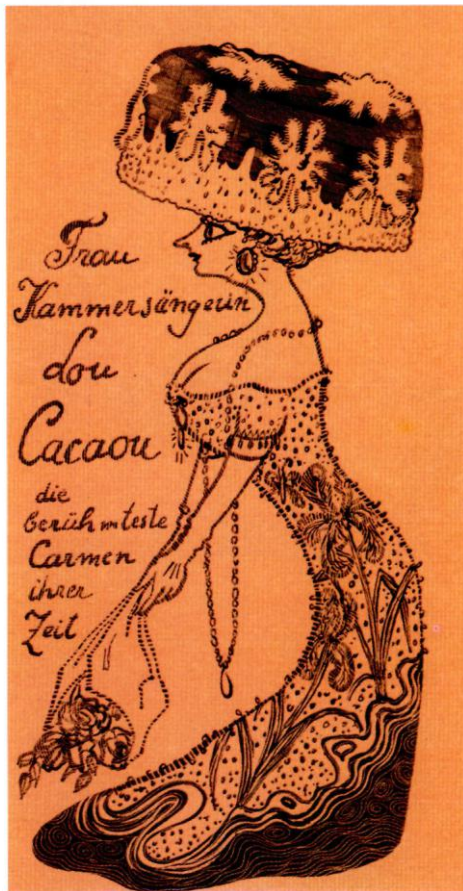 Frau
Kammersängerin
Lou
Cacaou
die
berühmteste
Carmen
ihrer
Zeit